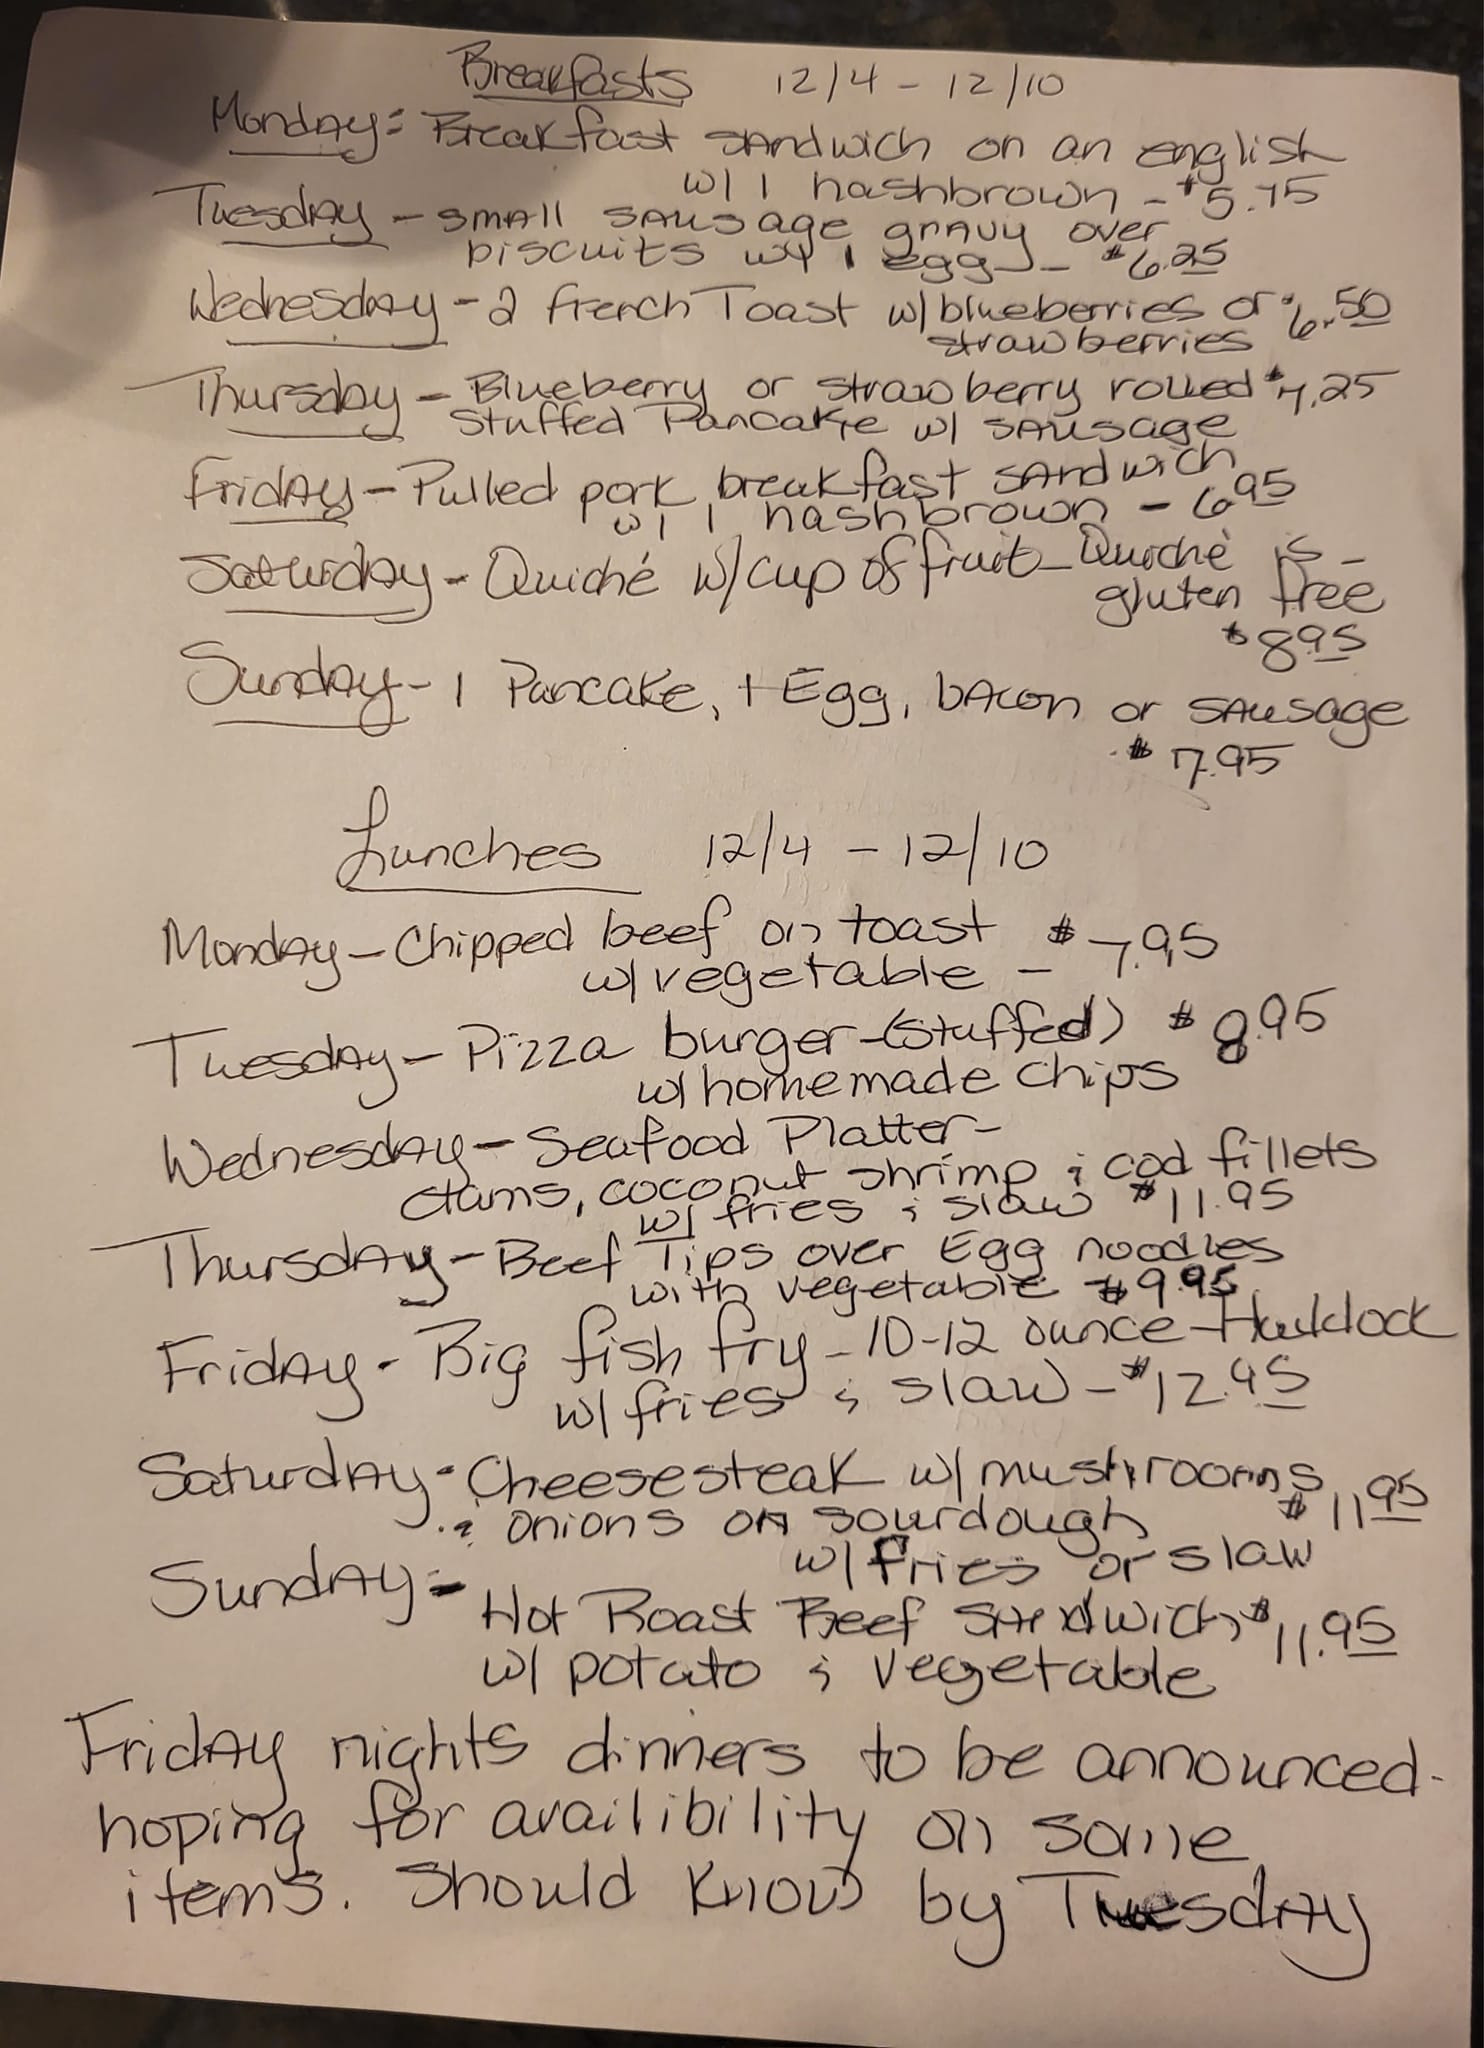 Breakfasts 12/4 - 12/10
Monday: Breakfast sandwich on an english
w/ 1 hashbrown - $5.75
Tuesday - small sausage gravy over
biscuits w/ 1 egg - $6.25
Wednesday - 2 french Toast w/ blueberries or $6.50
strawberries
Thursday - Blueberry or strawberry rolled $7.25
stuffed Pancake w/ sausage
Friday - Pulled pork breakfast sandwich
w/ 1 hashbrown - 6.95
Saturday - Quiché w/ cup of fruit - Quiché is -
gluten free
$8.95
Sunday - 1 Pancake, 1 Egg, bacon or sausage
$7.95
Lunches 12/4 - 12/10
Monday - Chipped beef on toast $7.95
w/ vegetable -
Tuesday - Pizza burger - (Stuffed) $8.95
w/ homemade chips
Wednesday - Seafood Platter -
clams, coconut shrimp & cod fillets
w/ fries & slaw $11.95
Thursday - Beef Tips over Egg noodles
with vegetable $9.95
Friday - Big fish fry - 10-12 ounce - Haddock
w/ fries & slaw - $12.95
Saturday - Cheesesteak w/ mushrooms $11.95
& onions on sourdough
w/ fries or slaw
Sunday -
Hot Roast Beef Sandwich $11.95
w/ potato & vegetable
Friday nights dinners to be announced -
hoping for availibility on some
items. Should know by Tuesday